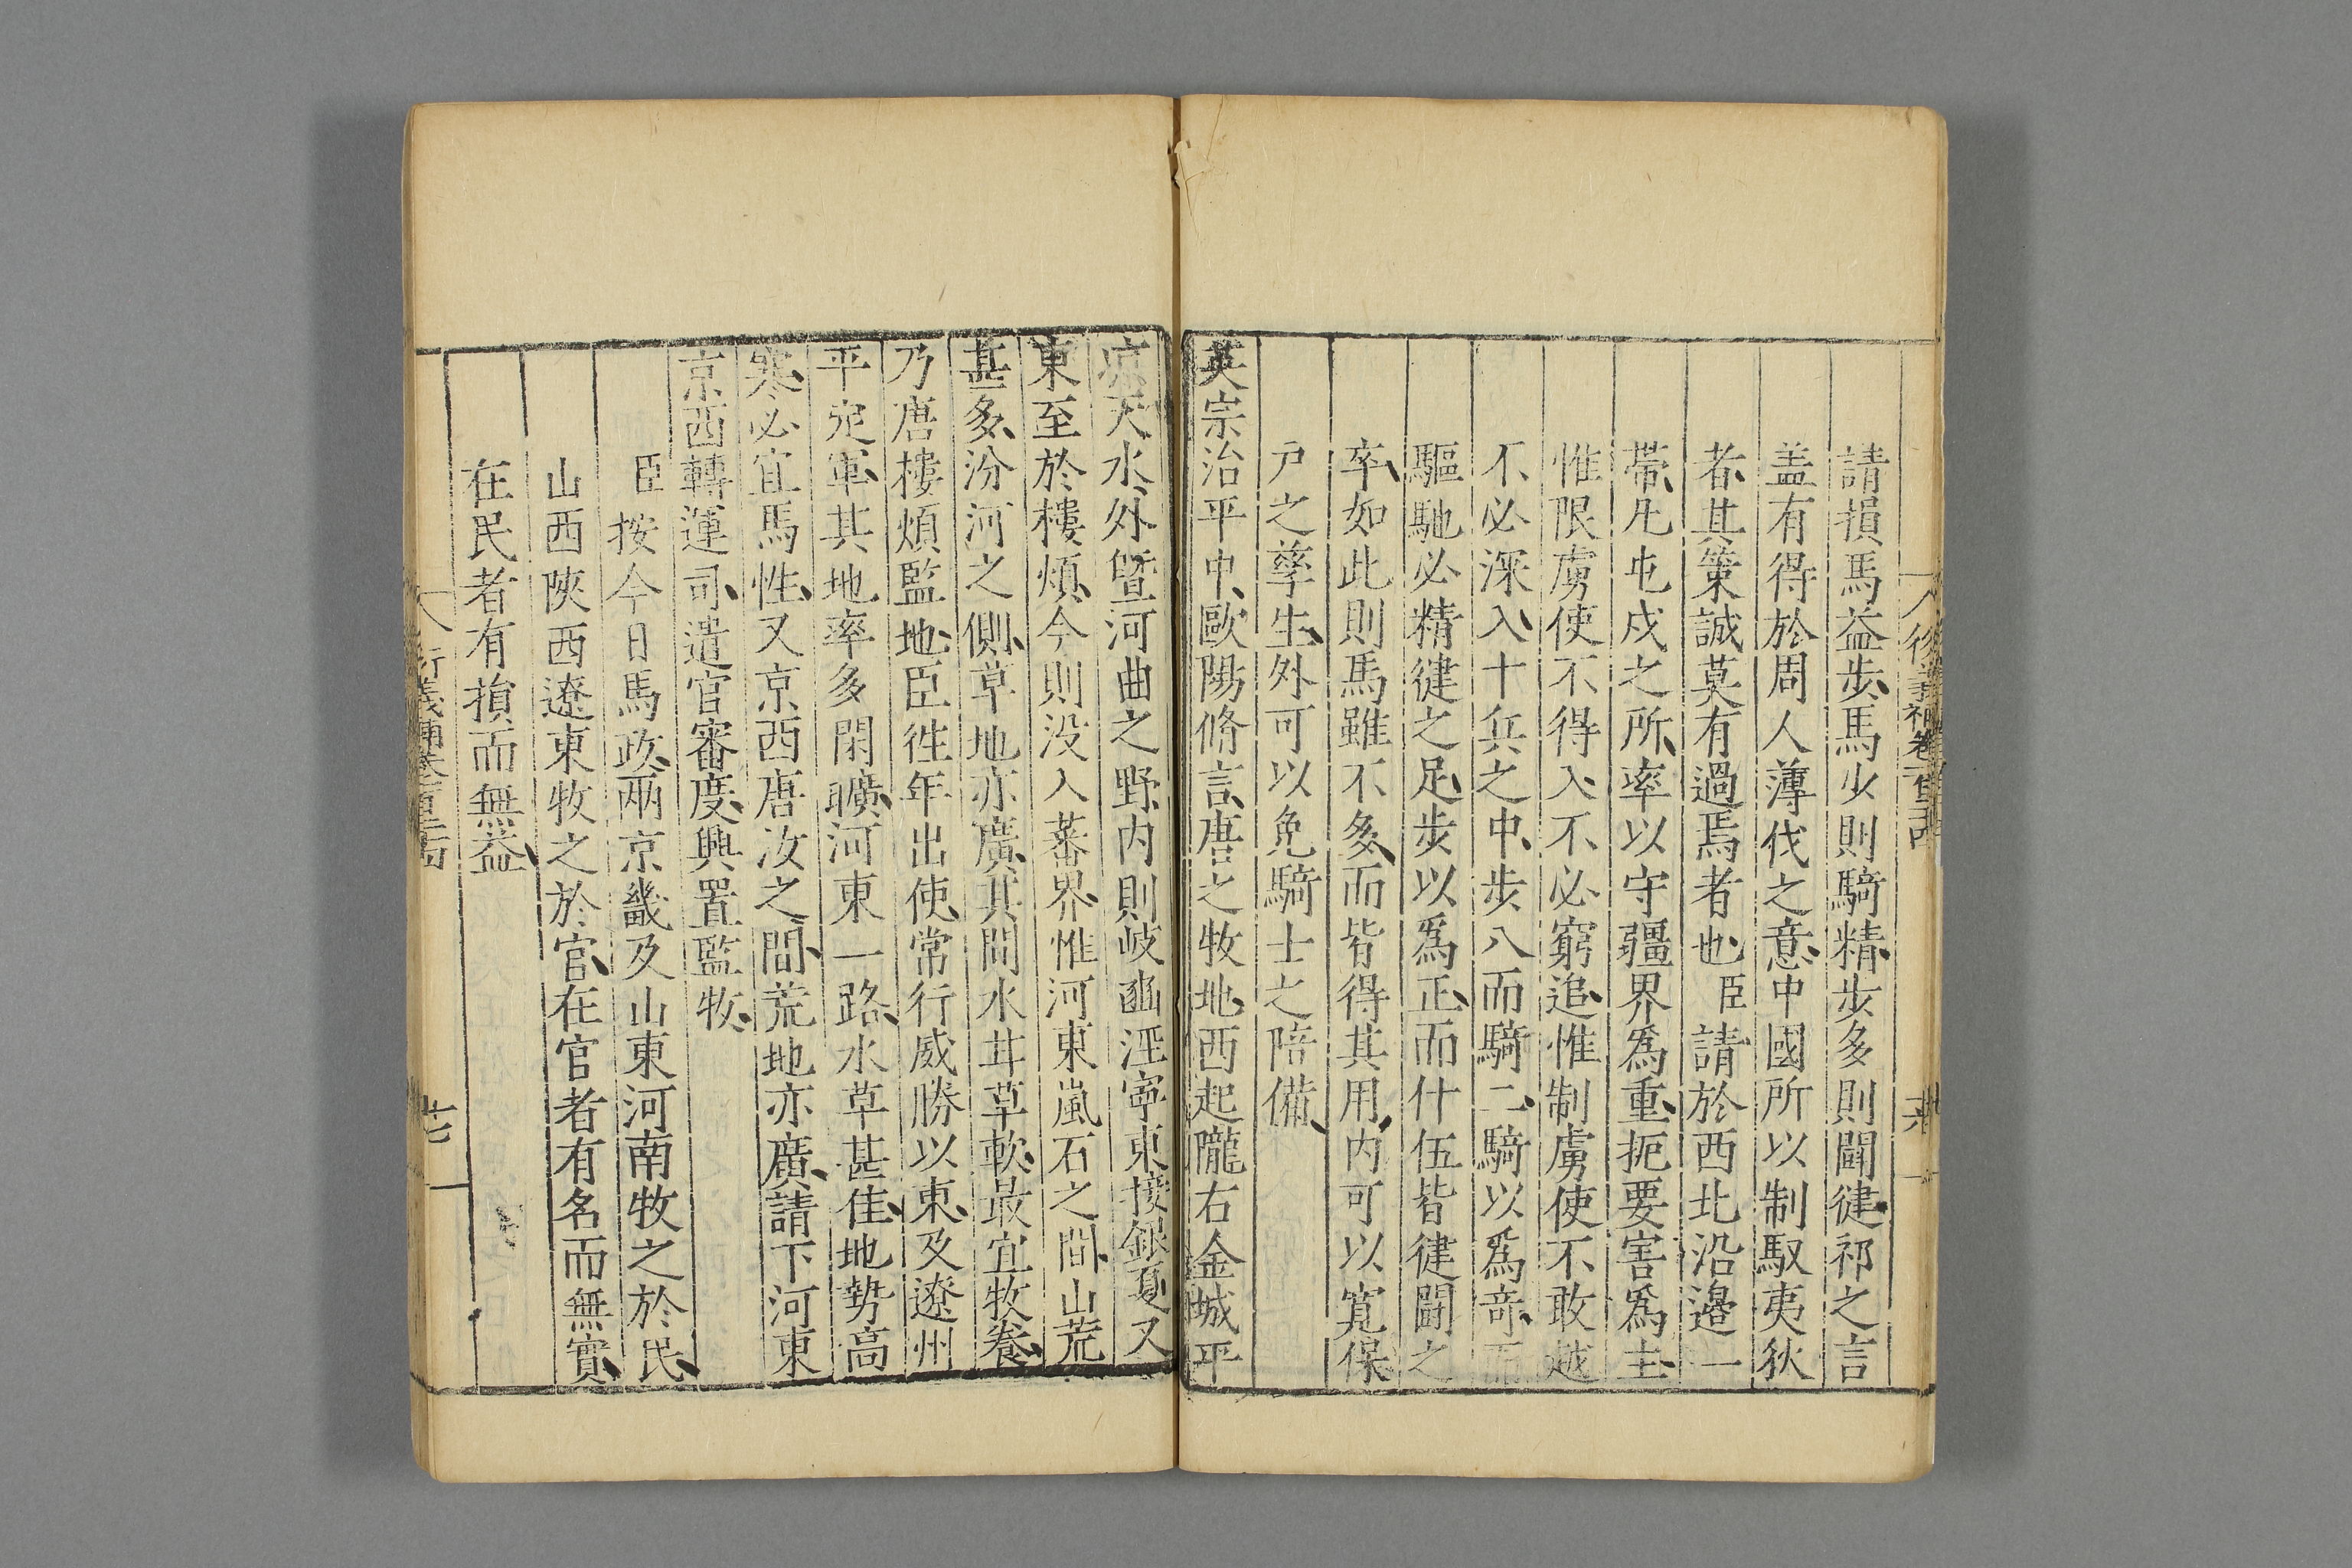 請損馬益步、馬少則騎精、步多則鬪健、祁之言
盖有得於周人薄伐之意、中國所以制馭夷狄
者、其策誠莫有過焉者也、臣請於西北沿邉一
帶、凡屯戍之所、率以守疆界爲重、扼要害爲主、
惟限虜使不得入、不必窮追、惟制虜使不敢越
不必深入、十兵之中、步八而騎二、騎以爲奇、而
驅馳必精健之足、步以爲正、而什伍皆健鬪之
卒、如此則馬雖不多、而皆得其用、内可以寬保
戸之孳生、外可以免騎士之陪備、
英宗治平中、歐陽脩言、唐之牧地、西起隴右金城平
凉天水、外曁河曲之野、内則岐豳涇寧、東接銀夏、又
東至於樓煩、今則没入蕃界、惟河東嵐石之間、山荒
甚多、汾河之側、草地亦廣、其間水甘草軟、最宜牧養、
乃唐樓煩監地、臣徃年出使、常行威勝以東、及遼州
平定軍、其地率多閑曠、河東一路、水草甚佳、地勢高
寒、必宜馬性、又京西唐汝之間、荒地亦廣、請下河東
京西轉運司、遣官審度、興置監牧、
臣按今日馬政、兩京畿及山東河南牧之於民、
山西陝西遼東牧之於官、在官者有名而無實、
在民者有損而無益、